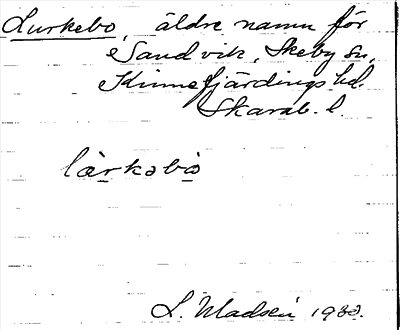 Lurkebo, äldre namn för
Sandvik, Skeby sn,
Kinnefjärdings hd.
Skarab. l.
L. Madsén